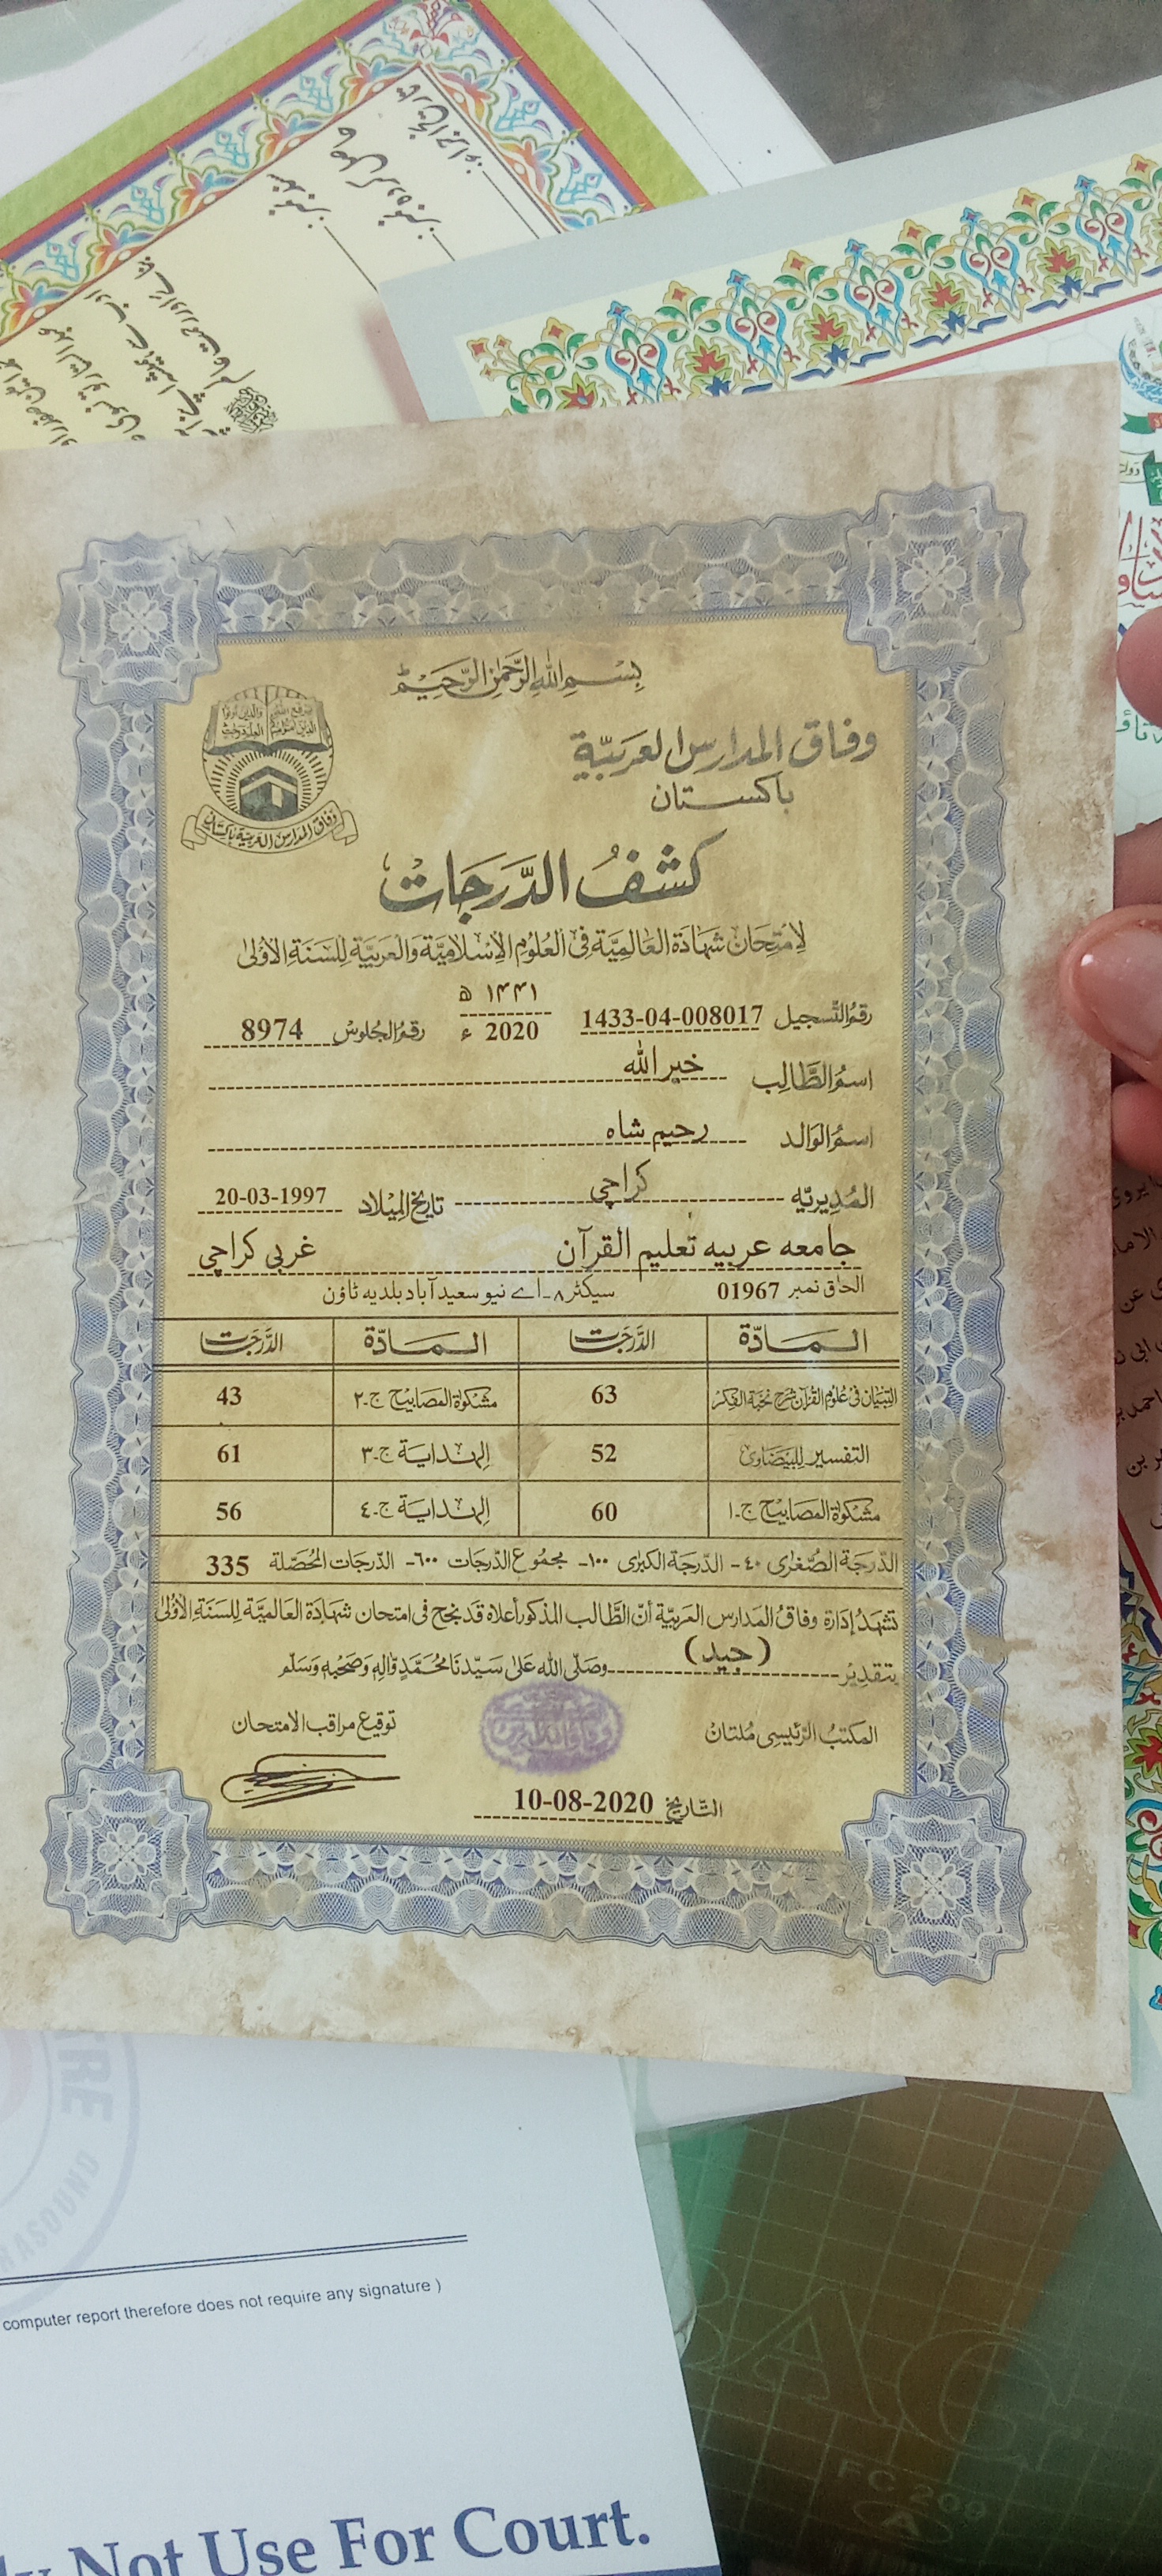 بِسْمِ اللهِ الرَّحْمٰنِ الرَّحِيْمِ
وفاق المدارس العربيّة
باكستان
وفاق المدارس العربية باكستان
كشفُ الدَّرَجَات
لِامتِحَان شَهَادَة العَالمِيَّة فِى العُلُوْمِ الاِسْلَامِيَّة وَالعَرَبِيَّة لِلسَنَةِ الاُوْلىٰ
رقمُ التَّسجيل 1433-04-008017 ۱۴۴۱ ھ 2020 ء رقمُ الجُلوس 8974
اسمُ الطَّالِب خیر اللہ
اسمُ الوَالد رحیم شاہ
المُدِيريّه کراچی تاريخ المِيْلاد 20-03-1997
جامعه عربیه تعلیم القرآن غربی کراچی
الحاق نمبر 01967 سیکٹر ۸۔اے نیو سعید آباد بلدیہ ٹاؤن
المَادّة الدَّرَجَت المَادّة الدَّرَجَت
التِبْيَان فى عُلُوم القُرآن شرح نُخبَة الفِكَر 63 مشكوة المصابيح ج-٢ 43
التفسير للبَيْضَاوِى 52 الهداية ج-٣ 61
مشكوة المصابيح ج-١ 60 الهداية ج-٤ 56
الدّرجَة الصُّغرٰى ۴۰- الدّرجَة الكبرٰى ۱۰۰- مجمُوع الدّرجَات ۶۰۰- الدّرجَات المُحَصَّلة 335
تَشهَدُ إدَارة وفاقُ المَدارس العربيّة أنّ الطَّالب المذكور أعلاه قد نجح فى امتحان شهَادَة العَالميَّة لِلسَنَةِ الأوْلىٰ
بتقدير (جید) وَصَلَّى الله عَلىٰ سَيّدنَا مُحَمَّدٍ وَّاٰلِهٖ وَصَحْبِهٖ وَسَلّم
المكتبُ الرَّئيسِى مُلتَان توقيع مراقب الامتحان
التّاريخ 10-08-2020
computer report therefore does not require any signature )
Not Use For Court.
FC 200